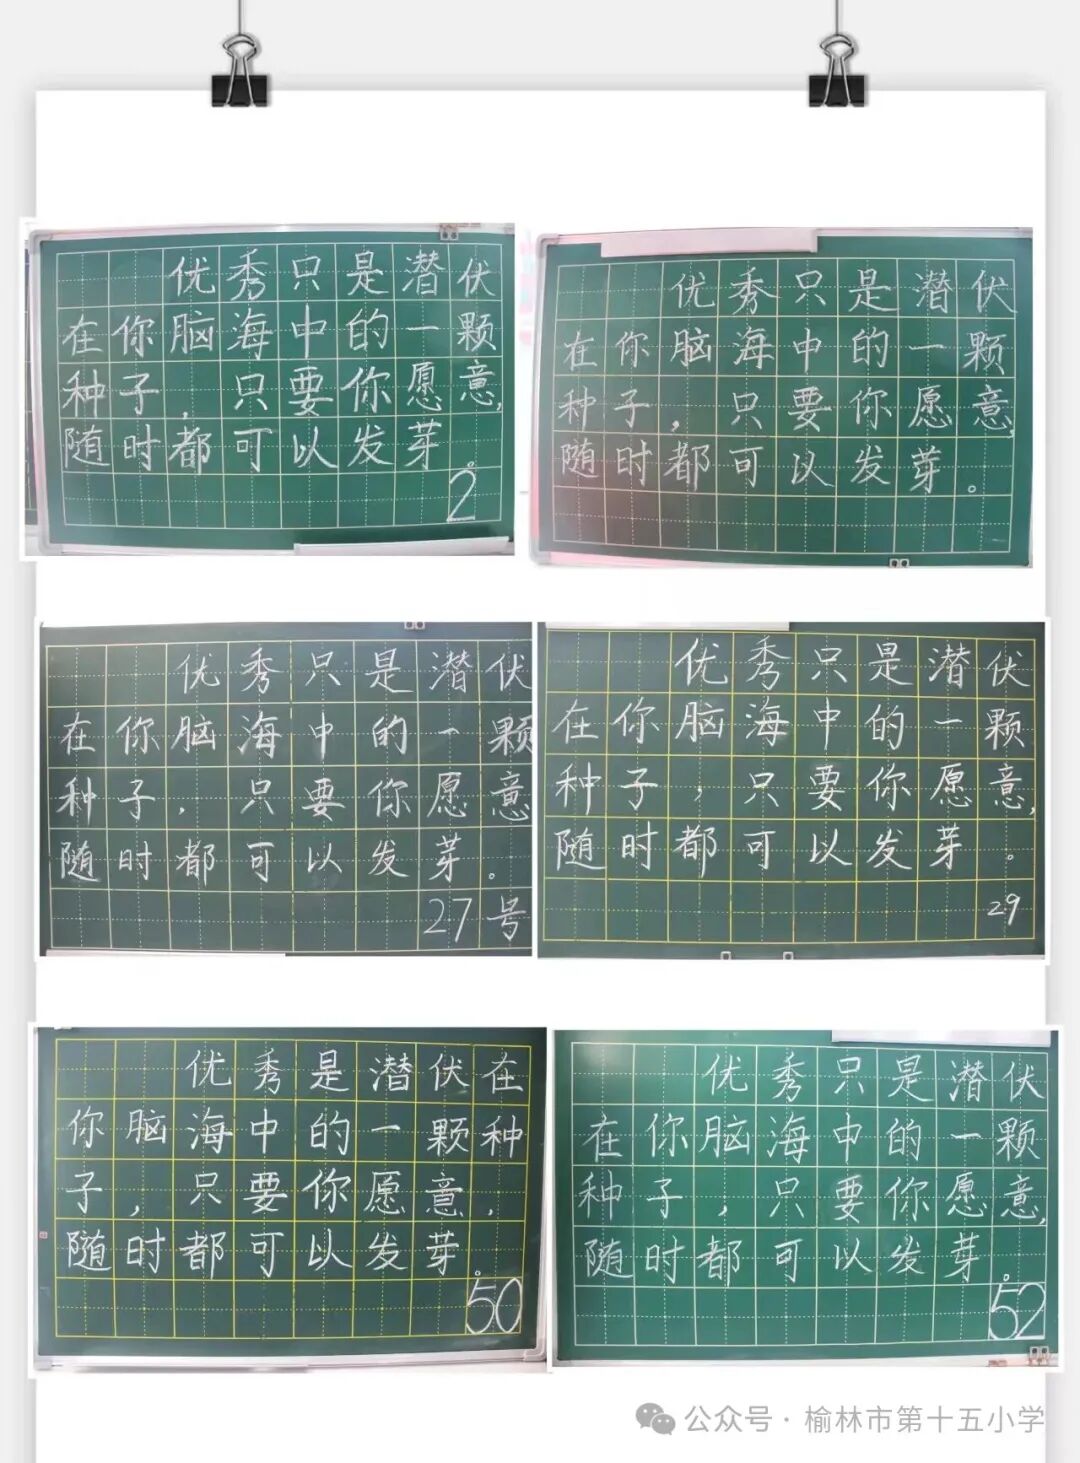 优秀只是潜伏
在你脑海中的一颗
种子，只要你愿意，
随时都可以发芽。
2
优秀只是潜伏
在你脑海中的一颗
种子，只要你愿意，
随时都可以发芽。
优秀只是潜伏
在你脑海中的一颗
种子，只要你愿意
随时都可以发芽。
27号
优秀只是潜伏
在你脑海中的一颗
种子，只要你愿意，
随时都可以发芽。
29
优秀是潜伏在
你脑海中的一颗种
子，只要你愿意，
随时都可以发芽。
50
优秀只是潜伏
在你脑海中的一颗
种子，只要你愿意，
随时都可以发芽。
52
公众号·榆林市第十五小学